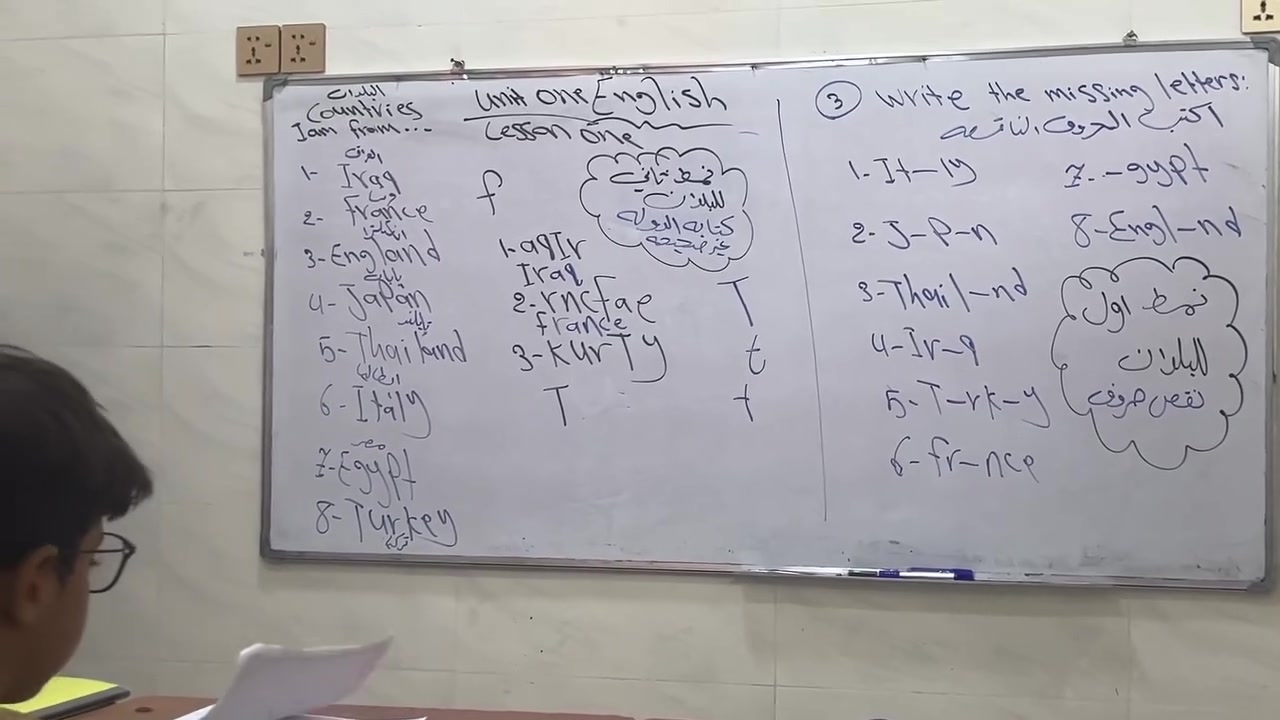 البلدان
Countries
I am from...
Unit One English
Lesson One
العراق
1- Iraq
فرنسا
2- france
انكلترا
3- England
يابان
4- Japan
تايلند
5- Thailand
ايطاليا
6- Italy
مصر
7- Egypt
8- Turkey
تركيا
f
نمط ثاني
للبلدان
كتابة الدولة
غير صحيحة
1- aqIr
Iraq
2- rncfae
france
3- KurTy
T
T
t
t
3 Write the missing letters:
اكتب الحروف الناقصة
1- It-ly
2- J-p-n
3- Thail-nd
4- Ir-q
5- T-rk-y
6- fr-nce
7- -gypt
8- Engl-nd
نمط اول
للبلدان
نقص حروف